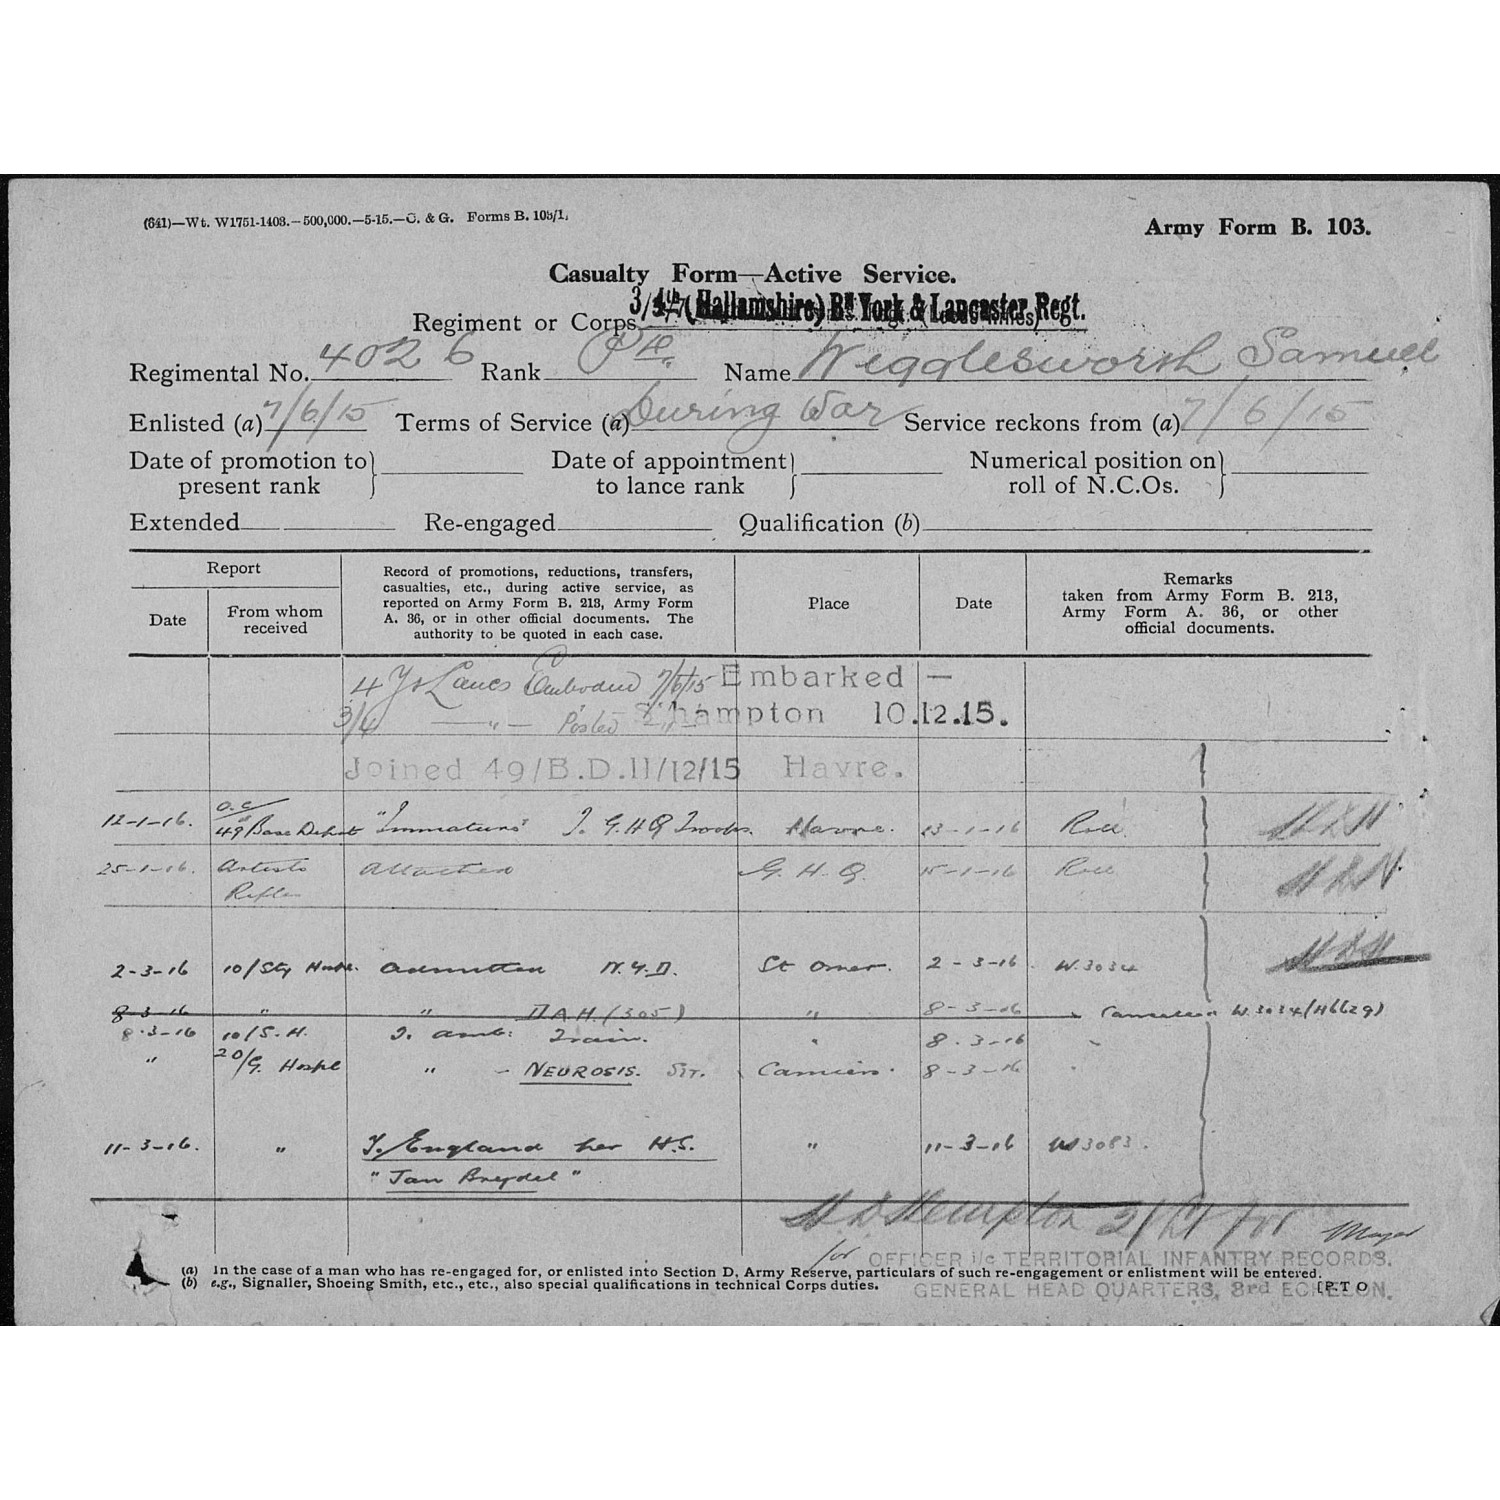 (641)—Wt. W1751-1403.—500,000.—5-15.—C. & G. Forms B. 103/1.
Army Form B. 103.
Casualty Form—Active Service.
Regiment or Corps 3/4th (Hallamshire) Bn York & Lancaster Regt.
Regimental No. 4026 Rank Pte. Name Wigglesworth Samuel
Enlisted (a) 7/6/15 Terms of Service (a) During War Service reckons from (a) 7/6/15
Date of promotion to present rank Date of appointment to lance rank Numerical position on roll of N.C.Os.
Extended Re-engaged Qualification (b)
Report
Date
From whom received
Record of promotions, reductions, transfers,
casualties, etc., during active service, as
reported on Army Form B. 213, Army Form
A. 36, or in other official documents. The
authority to be quoted in each case.
Place
Date
Remarks
taken from Army Form B. 213,
Army Form A. 36, or other
official documents.
4 Y & Lancs Embodied 7/6/15 Embarked —
3/4 —"— Posted S'hampton 10.12.15.
Joined 49/B.D. 11/12/15 Havre.
12-1-16. O.C/ 49 Base Depot "Immature" T. GHQ Troops. Havre. 13-1-16 Roll HDH
25-1-16. Artists Rifles Attached G.H.Q. 15-1-16 Roll HDH
2-3-16 10/Sty Hospl. Admitted N.Y.D. St Omer. 2-3-16 W.3034 HDH
8-3-16 " " DAH (305) " 8-3-16 Cancelled W.3034/(H6629)
8-3-16 10/S.H. T. Amb: Train. " 8-3-16
" 20/G. Hospl " - NEUROSIS. Camiers. 8-3-16
11-3-16. " T. England per H.S. " 11-3-16 W3083.
"Jan Breydel"
H D Hempton 2/Lt for Major
for OFFICER i/c TERRITORIAL INFANTRY RECORDS.
(a) In the case of a man who has re-engaged for, or enlisted into Section D, Army Reserve, particulars of such re-engagement or enlistment will be entered.
(b) e.g., Signaller, Shoeing Smith, etc., etc., also special qualifications in technical Corps duties.
GENERAL HEAD QUARTERS, 3rd ECHELON.
[P.T O